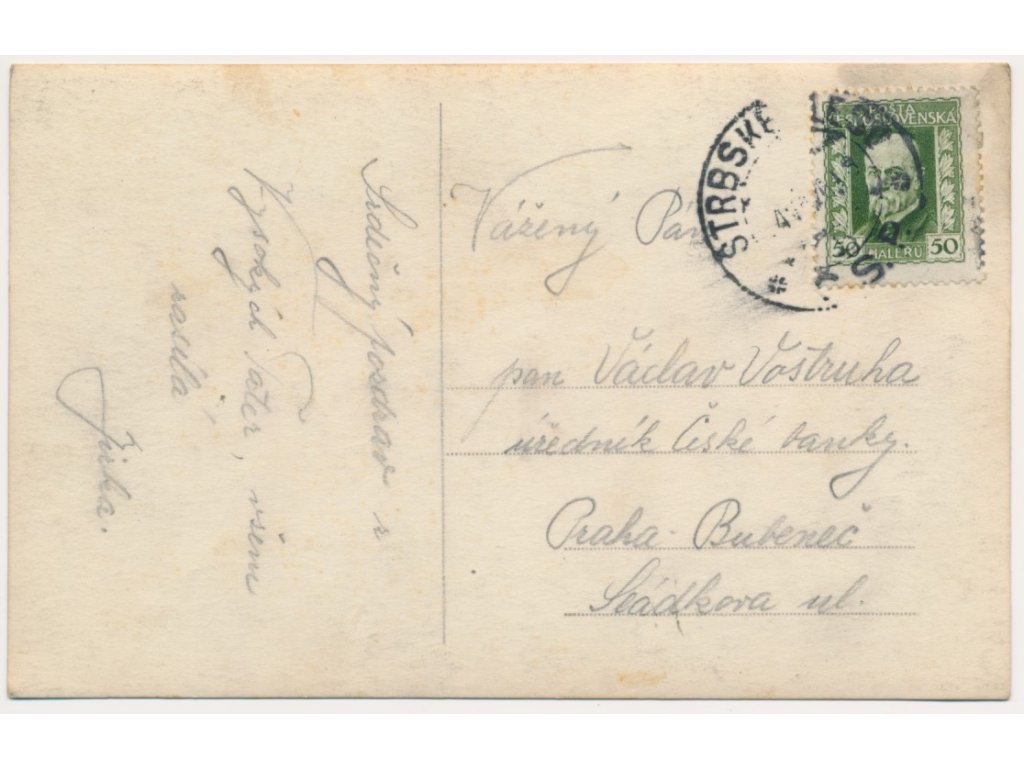 Srdečný pozdrav z
Vysokých Tater, všem
zasílá
Jirka.
Vážený Pan
pan Václav Vostruha
úředník České banky.
Praha-Bubeneč
Sládkova ul.
STRBSKÉ
POŠTA
ČESKOSLOVENSKÁ
50 50
HALÉŘŮ